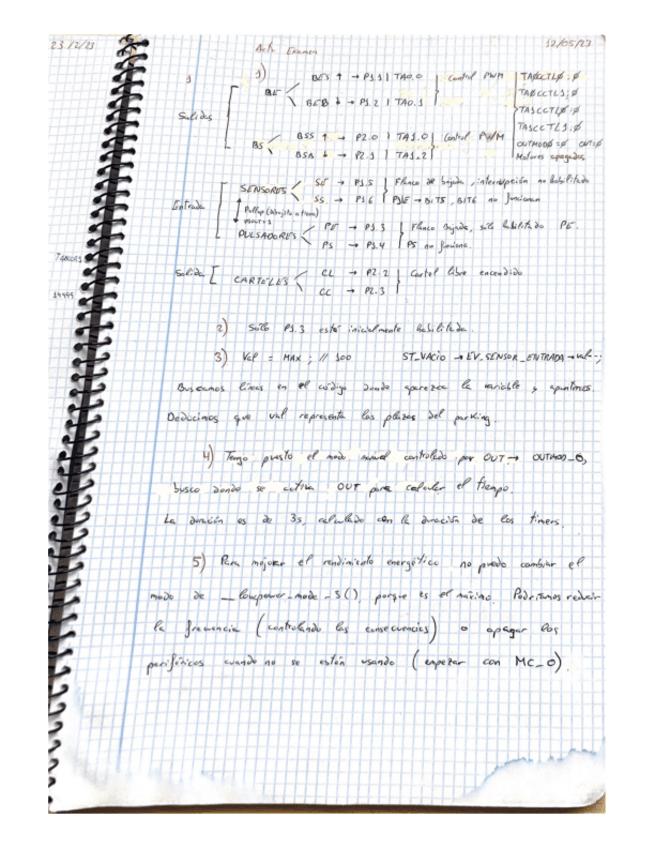 23/2/23 Acti Examen 12/05/23
1 1) BES ↑ → P1.1 | TA0.0 Control PWM TA0CCTL0:0
BE TA0CCTL1:0
BEB ↓ → P1.2 | TA0.1 TA1CCTL0:0
Salidas TA1CCTL1:0
BSS ↑ → P2.0 | TA1.0 Control PWM OUTMOD0=0 OUT:0
BS BSB ↓ → P2.1 | TA1.2 Motores apagados
SENSORES SE → P1.5 Flanco de bajada, interrupción no habilitada
SS → P1.6 P1IE → BIT5, BIT6 no funcionan
Entrada Pullup
PULSADORES PE → P1.3 Flanco bajada, sólo habilitado PE.
PS → P1.4 PS no funciona.
Salida CARTELES CL → P2.2 Cartel libre encendido
CC → P2.3
19999
2) Sólo P1.3 está inicialmente habilitada.
3) Val = MAX; // 100 ST_VACIO → EV_SENSOR_ENTRADA → val--;
Buscamos líneas en el código donde aparezca la variable y apuntamos.
Deducimos que val representa las plazas del parking.
4) Tengo puesto el modo manual controlado por OUT → OUTMOD_0,
busco donde se activa OUT para calcular el tiempo.
La duración es de 3s, calculado con la duración de los timers.
5) Para mejorar el rendimiento energético no puedo cambiar el
modo de __low_power_mode_3(), porque es el máximo. Podríamos reducir
la frecuencia (controlando las consecuencias) o apagar los
periféricos cuando no se están usando (empezar con MC_0).